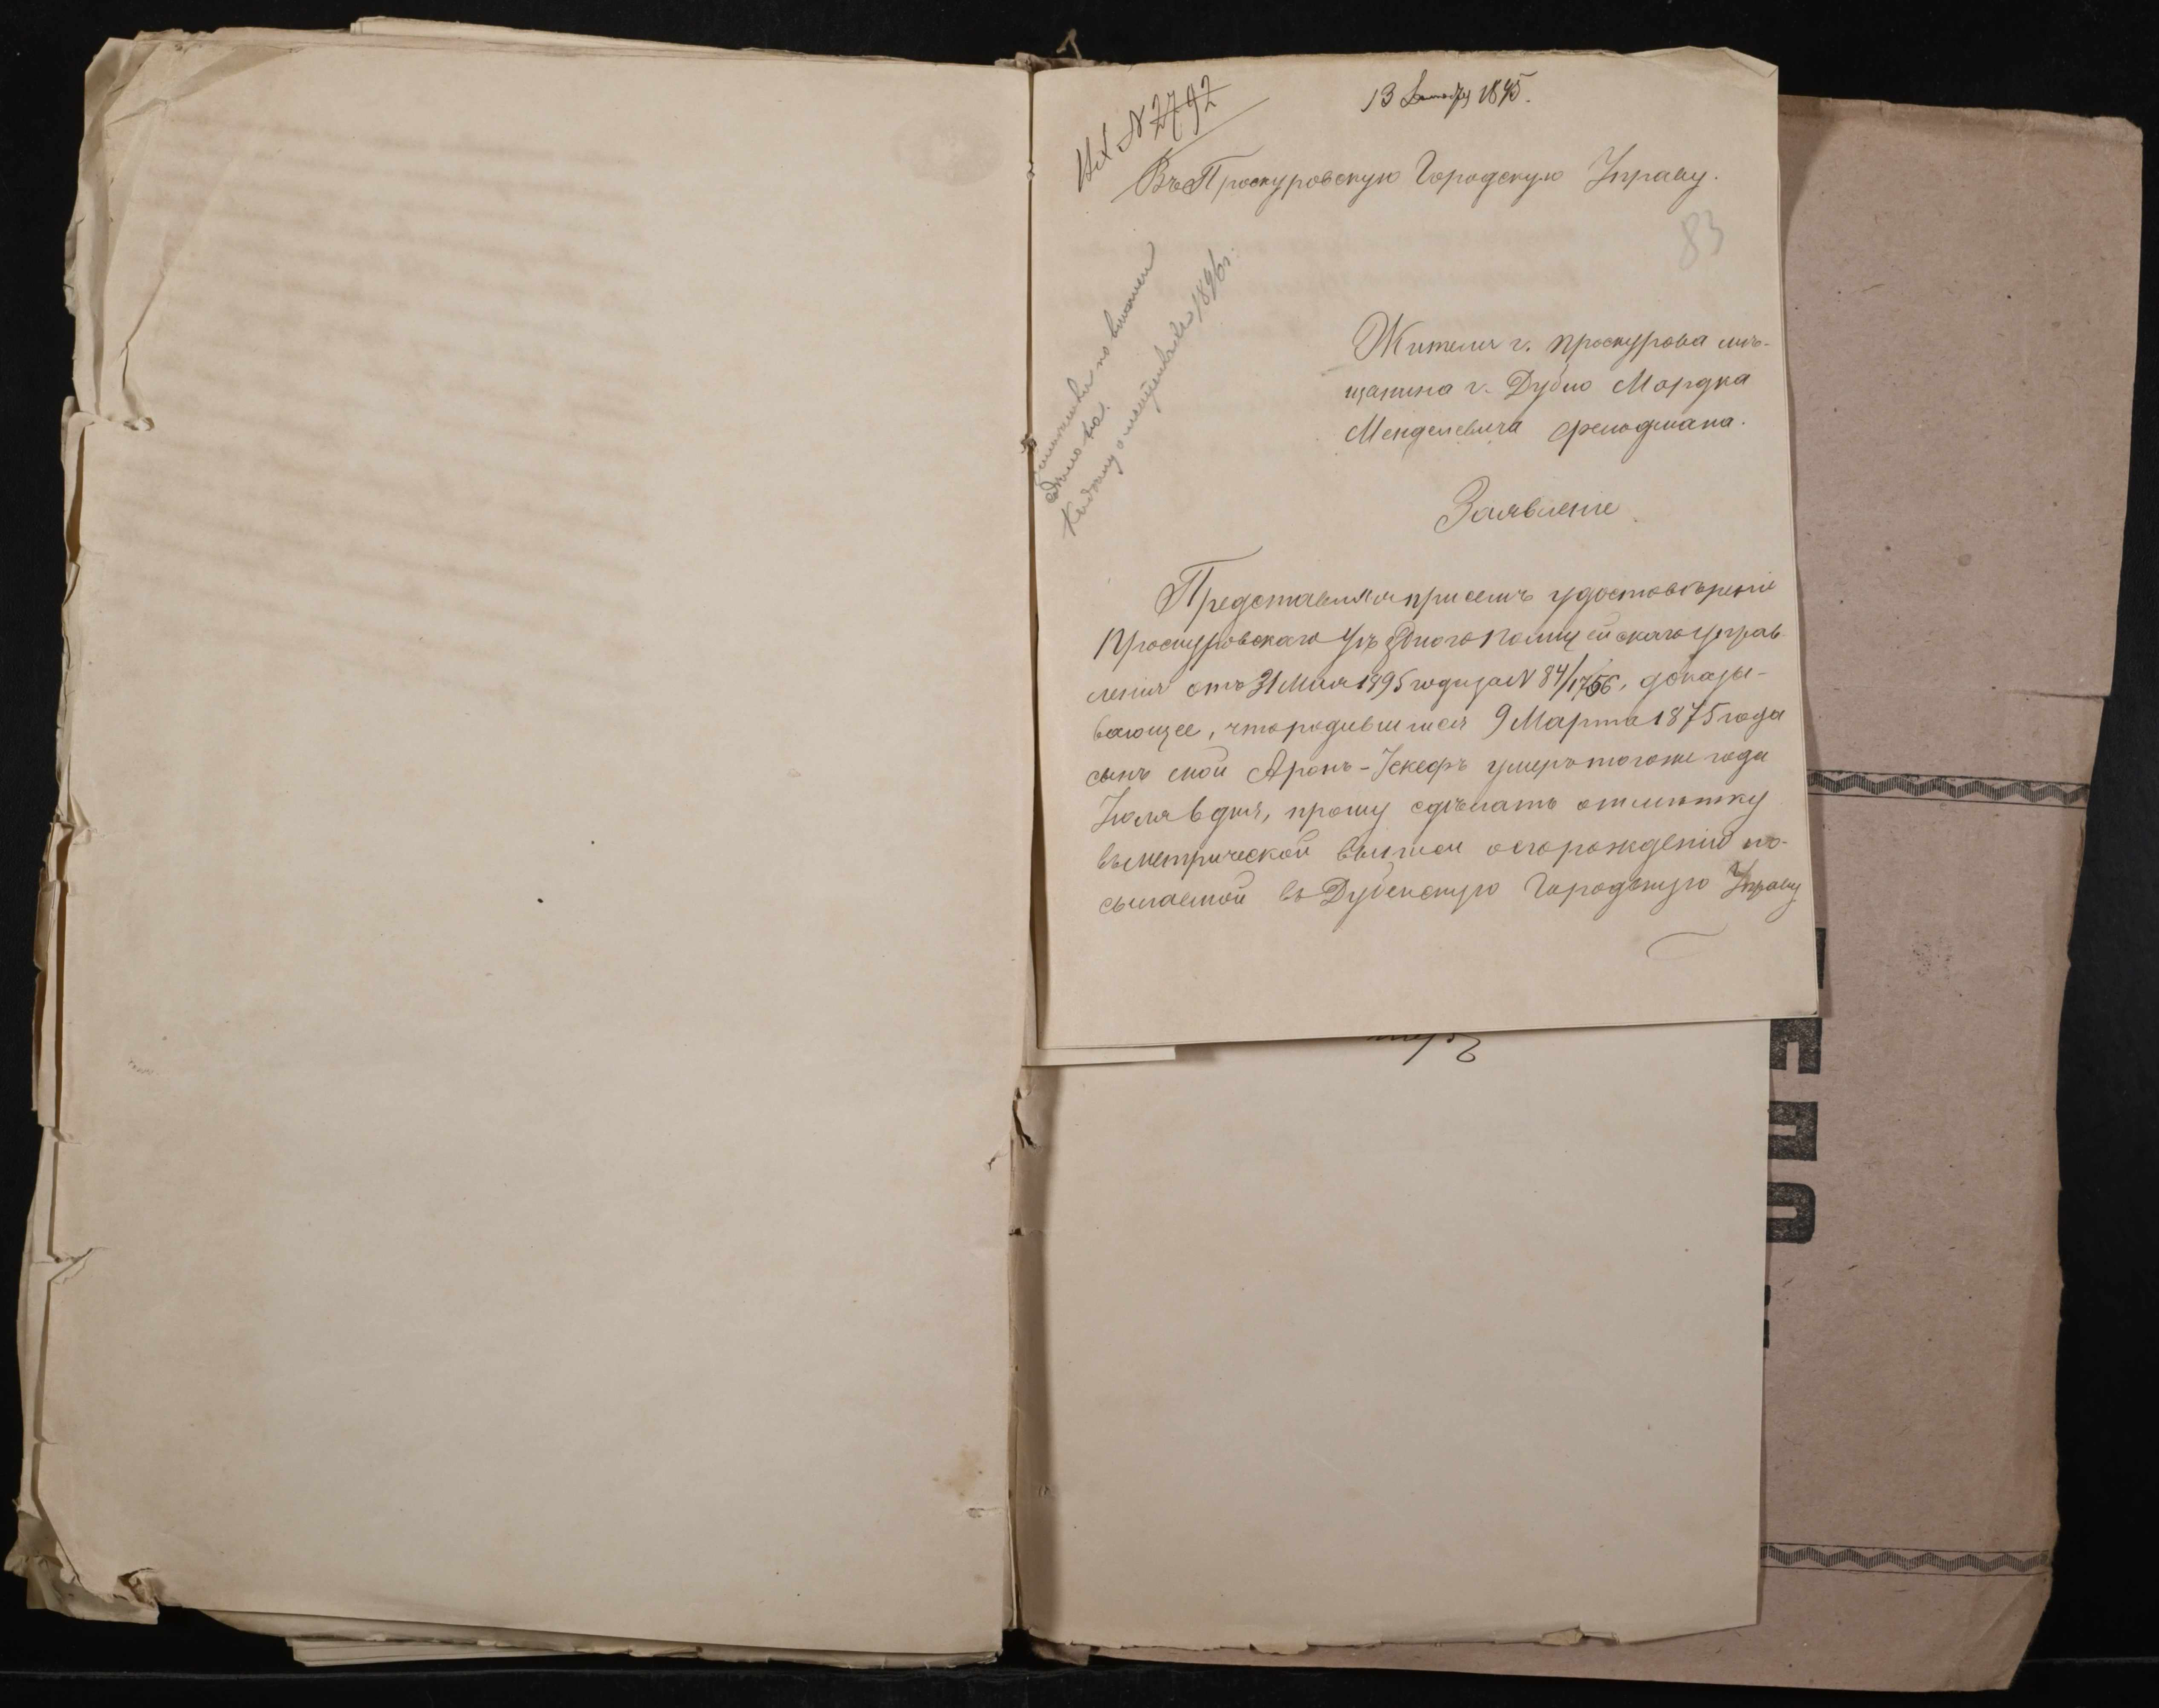 Вх № 2792
13 Сентября 1895.
Въ Проскуровскую Городскую Управу.
83
Жителя г. Проскурова мѣ-
щанина г. Дубно Мордка
Менделевича Фельдмана.
Заявленіе
Представляя при семъ удостовѣреніе
Проскуровскаго Уѣзднаго Полицейскаго Управ-
ленія отъ 31 Мая 1895 года за № 84/1756, доказы-
вающее, что родившійся 9 Марта 1875 года
сынъ мой Аронъ-Іскефъ умеръ того же года
Іюля 6 дня, прошу сдѣлать отмѣтку
въ метрической выписи о его рожденіи по-
сылаемой въ Дубенскую Городскую Управу